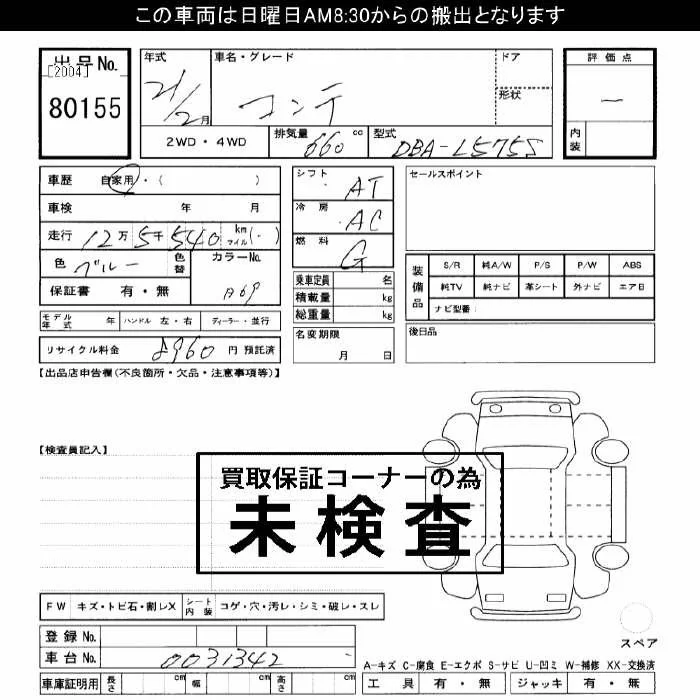 この車両は日曜日AM8:30からの搬出となります
出品No.
[2004]
80155
年式 21/2月
車名・グレード コンテ
ドア
形状
2WD・4WD
排気量 660 cc
型式 DBA-L575S
評価点
—
内装
車歴 自家用・( )
車検 年 月
走行 12万5千540 km マイル(・)
色 ブルー 色替 カラーNo. B69
保証書 有・無
モデル年式 年 ハンドル 左・右 ディーラー・並行
リサイクル料金 8960 円 預託済
シフト AT
冷房 AC
燃料 G
乗車定員 名
積載量 kg
総重量 kg
名変期限
月 日
セールスポイント
装備品
S/R 純A/W P/S P/W ABS
純TV 純ナビ 革シート 外ナビ エアB
ナビ型番:
後日品
【出品店申告欄(不良箇所・欠品・注意事項等)】
【検査員記入】
買取保証コーナーの為
未検査
FW キズ・トビ石・割レX シート内装 コゲ・穴・汚レ・シミ・破レ・スレ
登録No.
車台No. 0031342
スペア
A-キズ C-腐食 E-エクボ S-サビ U-凹ミ W-補修 XX-交換済
車庫証明用 長さ cm 幅 cm 高さ cm
工具 有・無 ジャッキ 有・無